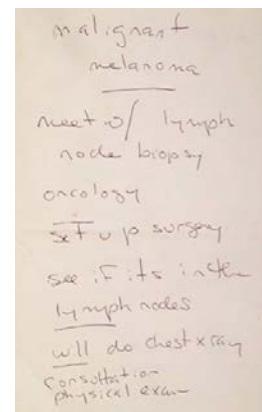 malignant
melanoma
meet w/ lymph
node biopsy
oncology
set up surgery
see if its in the
lymph nodes
will do chest x ray
consultation
physical exam